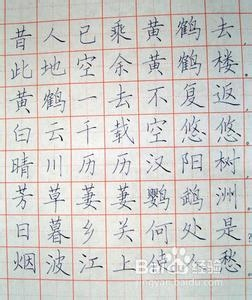 昔人已乘黄鹤去
此地空余黄鹤楼
黄鹤一去不复返
白云千载空悠悠
晴川历历汉阳树
芳草萋萋鹦鹉洲
日暮乡关何处是
烟波江上使愁
Baidu经验
jingyan.baidu.com